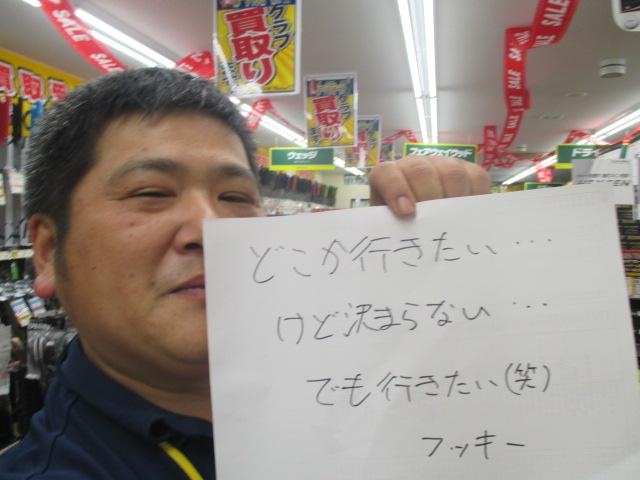 クラブ
買取り
クラブ
買取り
SALE
ウェッジ
フェアウェイウッド
どこか行きたい…
けど決まらない…
でも行きたい(笑)
フッキー